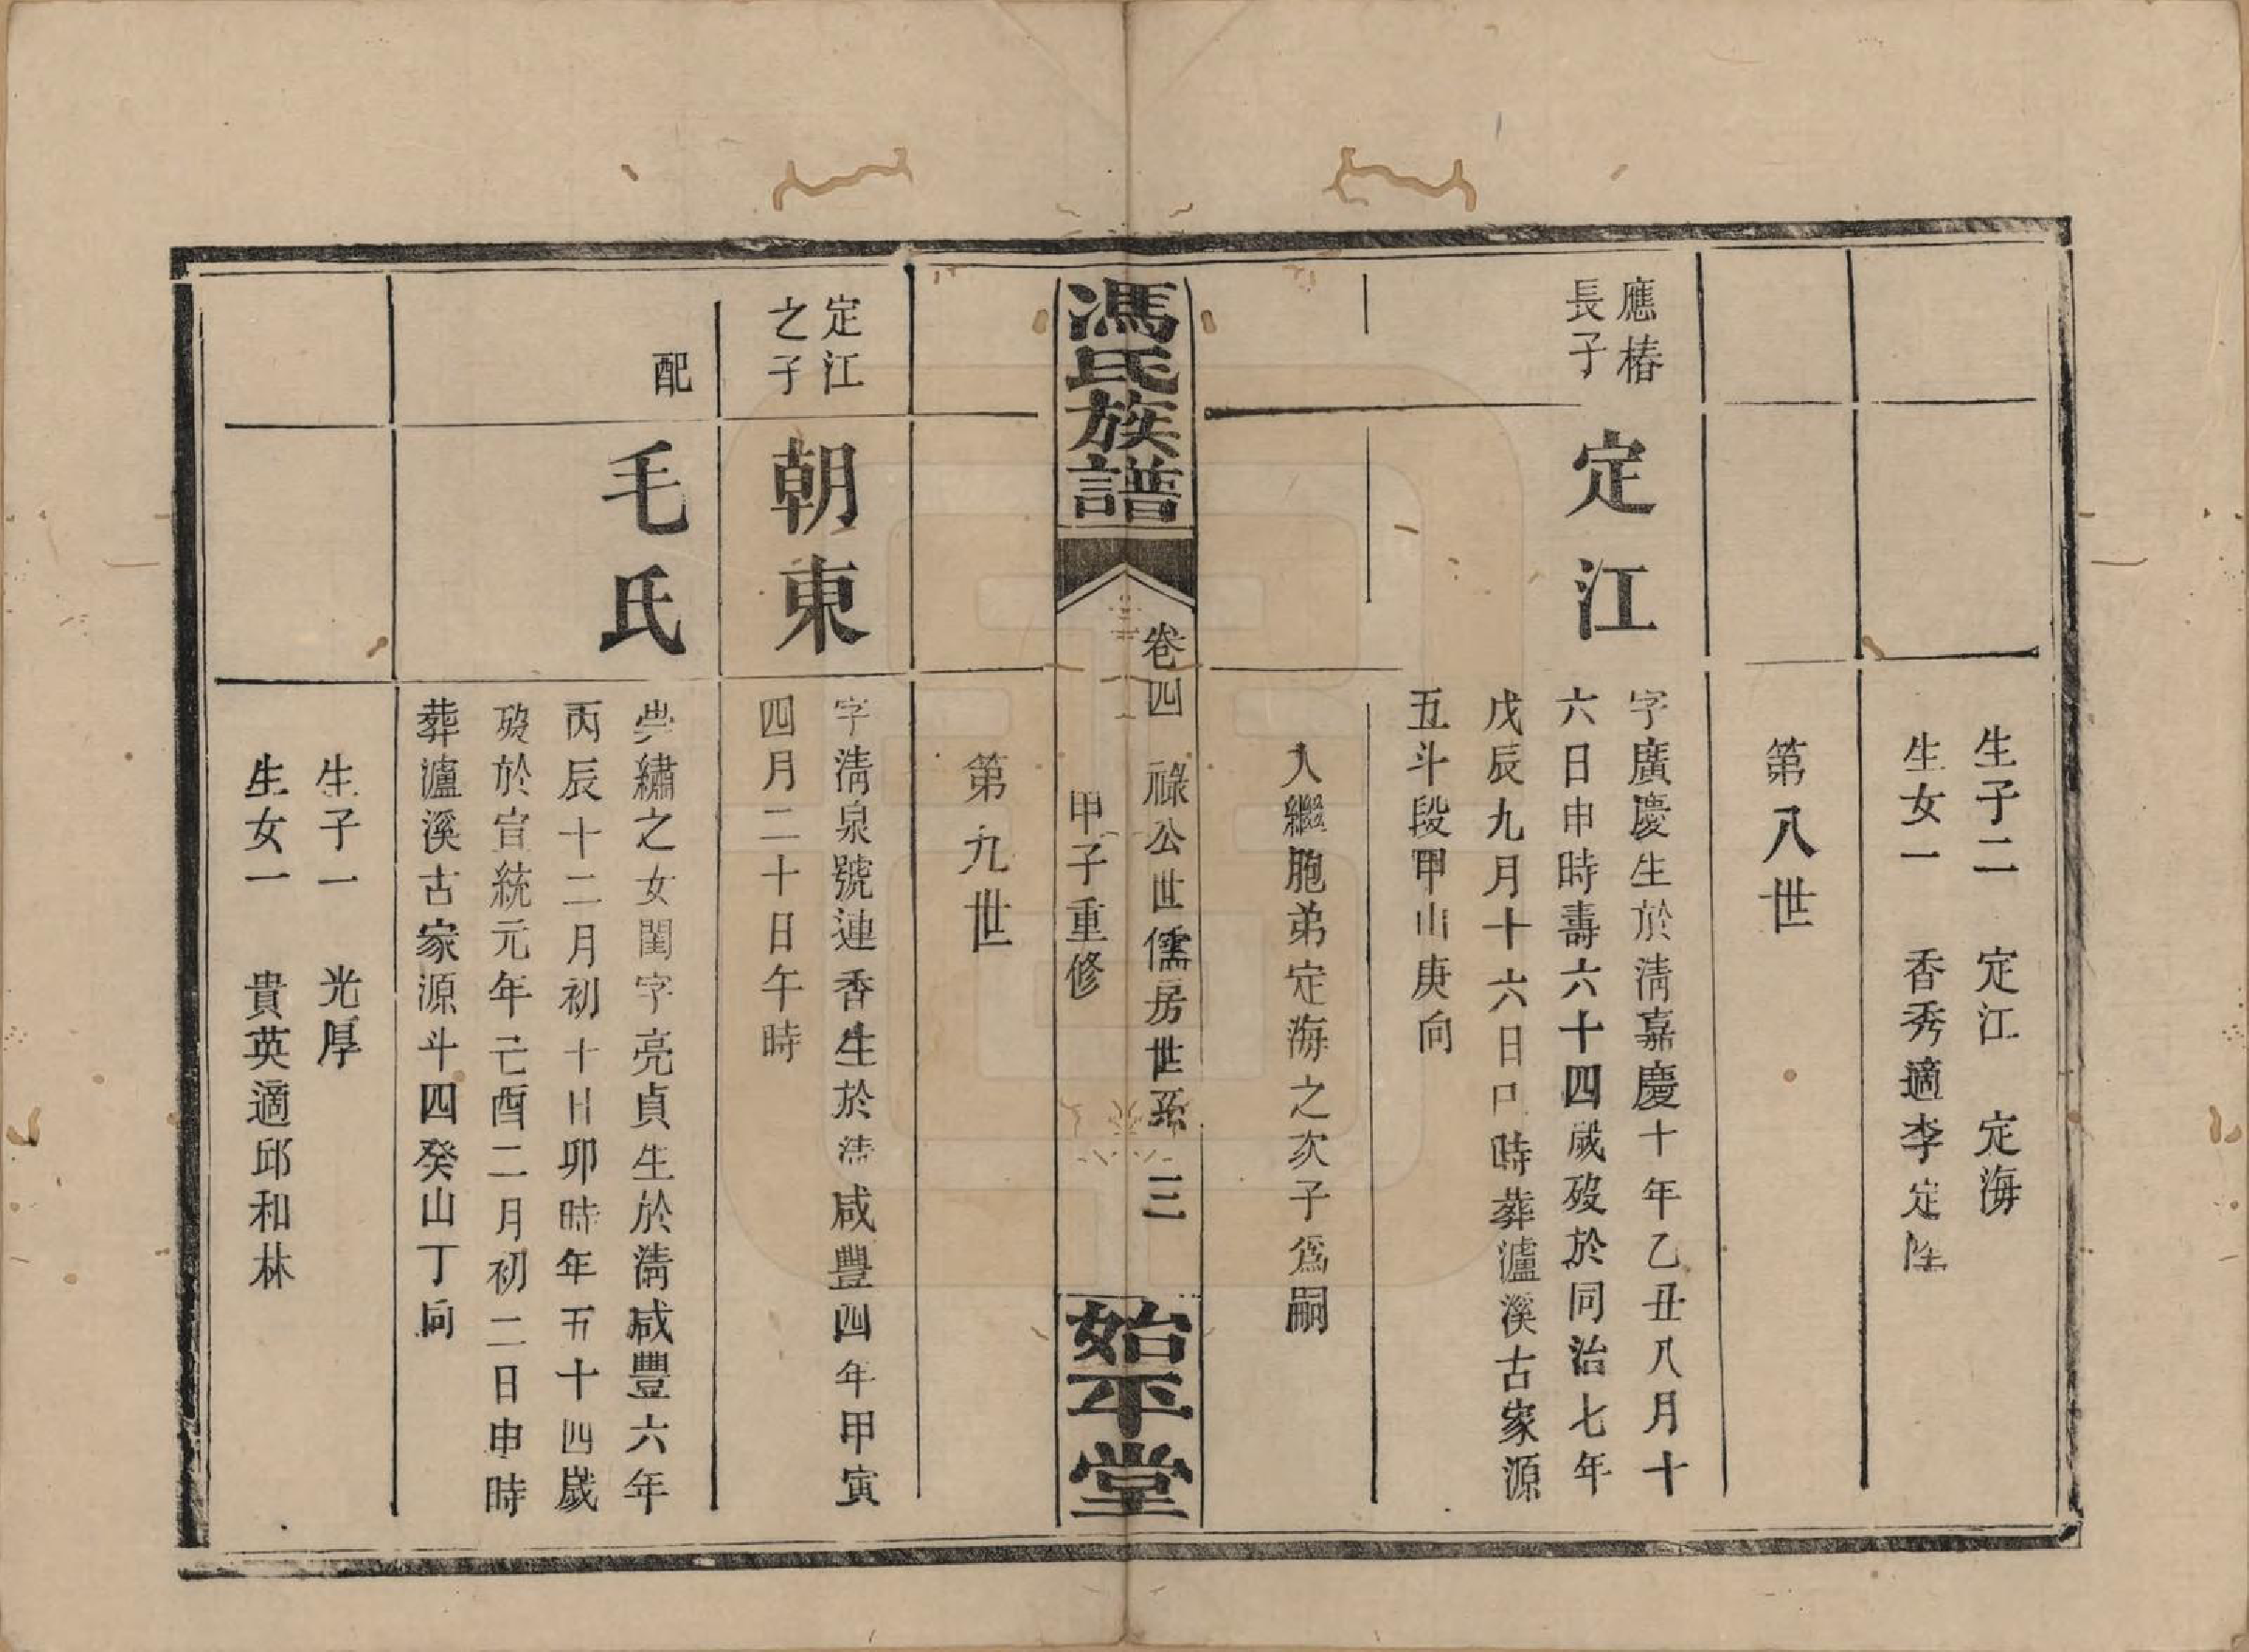 生子二 定江 定海
生女一 香秀適李定陞
第八世
應椿
長子
定江
字廣慶生於淸嘉慶十年乙丑八月十
六日申時壽六十四歲歿於同治七年
戊辰九月十六日 時葬瀘溪古家源
五斗段甲山庚向
入繼胞弟定海之次子爲嗣
馮氏族譜
卷四 祿公世儒房世系 三
甲子重修
始平堂
第九世
定江
之子
朝東
字淸泉號連香生於淸咸豐四年甲寅
四月二十日午時
配
毛氏
典繡之女閨字亮貞生於淸咸豐六年
丙辰十二月初十日卯時年五十四歲
歿於宣統元年己酉二月初二日申時
葬瀘溪古家源斗四癸山丁向
生子一 光厚
生女一 貴英適邱和林